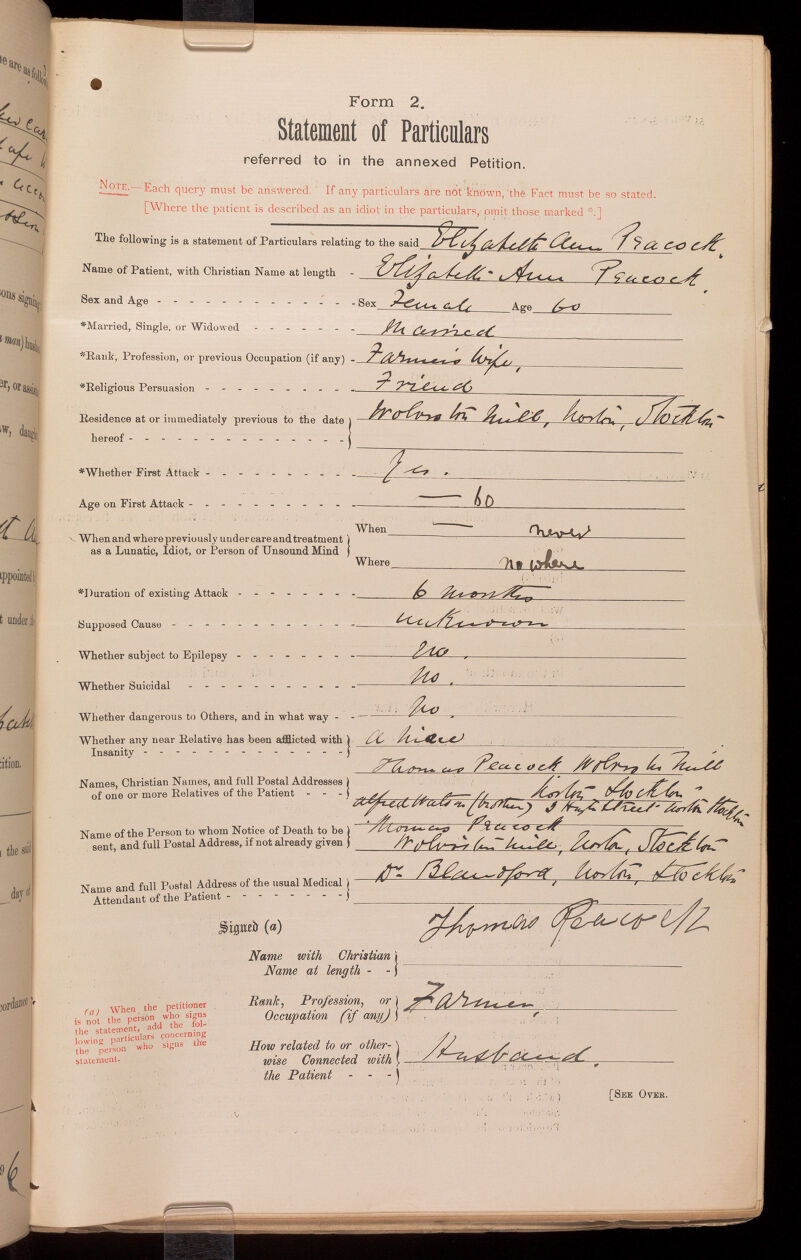 Form 2.
Statement of Particulars
referred to in the annexed Petition.
NOTE.—Each query must be answered. If any particulars are not known, the Fact must be so stated.
[Where the patient is described as an idiot in the particulars, omit those marked *.]
The following is a statement of Particulars relating to the said Elizabeth Ann Peacock.
Name of Patient, with Christian Name at length - Elizabeth Ann Peacock.
Sex and Age - - - - - - - - - - - - - Sex Female Age 60
*Married, Single, or Widowed - - - - - - - Married
*Rank, Profession, or previous Occupation (if any) - Farmer's Wife,
*Religious Persuasion - - - - - - - - - - Friend
Residence at or immediately previous to the date Wolviston Mill, Norton, Stockton
hereof - - - - - - - - - - - - - -
*Whether First Attack - - - - - - - - - - Yes.
Age on First Attack - - - - - - - - - - - — 60
When and where previously under care and treatment When — never
as a Lunatic, Idiot, or Person of Unsound Mind Where no where
*Duration of existing Attack - - - - - - - - 6 months
Supposed Cause - - - - - - - - - - - - unknown
Whether subject to Epilepsy - - - - - - - - No.
Whether Suicidal - - - - - - - - - - - No.
Whether dangerous to Others, and in what way - - No.
Whether any near Relative has been afflicted with A niece
Insanity - - - - - - - - - - - - -
Thomas Peacock Wolviston Mill
Names, Christian Names, and full Postal Addresses Norton Stockton
of one or more Relatives of the Patient - - - Alfred Watson (brother) High Street Norton Stockton
Name of the Person to whom Notice of Death to be Thomas Peacock
sent, and full Postal Address, if not already given Wolviston Mill, Norton, Stockton
Name and full Postal Address of the usual Medical Dr Blandford, Norton, Stockton
Attendant of the Patient - - - - - - - -
Signed (a) Thomas Peacock
Name with Christian
Name at length - -
Rank, Profession, or Farmer,
Occupation (if any)
How related to or other-
wise Connected with Husband.
the Patient - - -
(a) When the petitioner
is not the person who signs
the statement, add the fol-
lowing particulars concerning
the person who signs the
statement.
[SEE OVER.